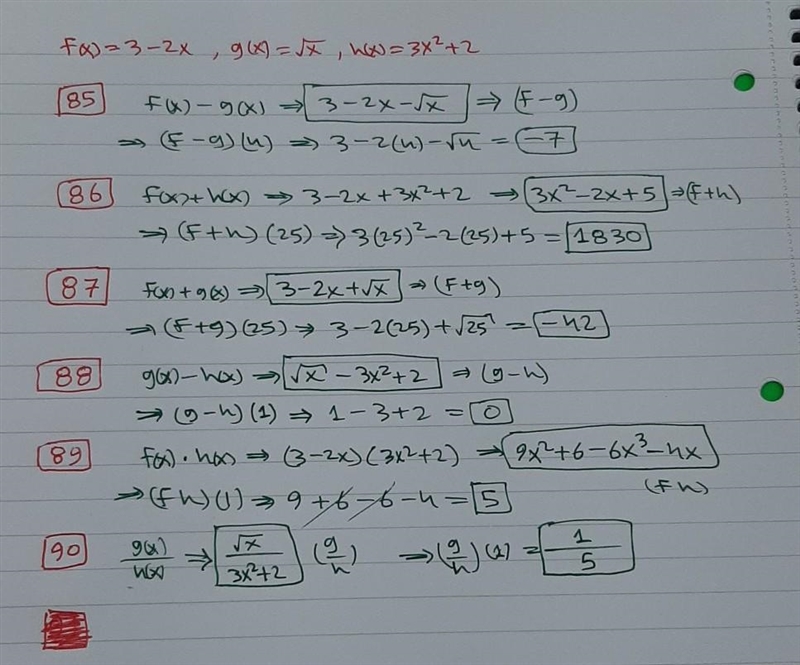 f(x) = 3 - 2x , g(x) = √x , h(x) = 3x² + 2
85 f(x) - g(x) ⇒ 3 - 2x - √x ⇒ (f - g)
⇒ (f - g)(4) ⇒ 3 - 2(4) - √4 = -7
86 f(x) + h(x) ⇒ 3 - 2x + 3x² + 2 ⇒ 3x² - 2x + 5 ⇒ (f + h)
⇒ (f + h) (25) ⇒ 3(25)² - 2(25) + 5 = 1830
87 f(x) + g(x) ⇒ 3 - 2x + √x ⇒ (f + g)
⇒ (f + g)(25) ⇒ 3 - 2(25) + √25 = -42
88 g(x) - h(x) ⇒ √x - 3x² + 2 ⇒ (g - h)
⇒ (g - h)(1) ⇒ 1 - 3 + 2 = 0
89 f(x) · h(x) ⇒ (3 - 2x)(3x² + 2) ⇒ 9x² + 6 - 6x³ - 4x
(f h)
⇒ (f h)(1) ⇒ 9 + 6 - 6 - 4 = 5
90 g(x)/h(x) ⇒ √x/3x² + 2 (g/h) ⇒ (g/h)(1) = 1/5